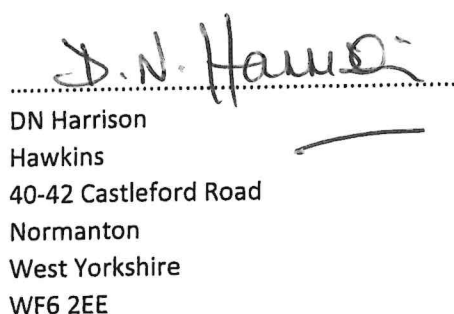 D.N. Harrison
DN Harrison
Hawkins
40-42 Castleford Road
Normanton
West Yorkshire
WF6 2EE